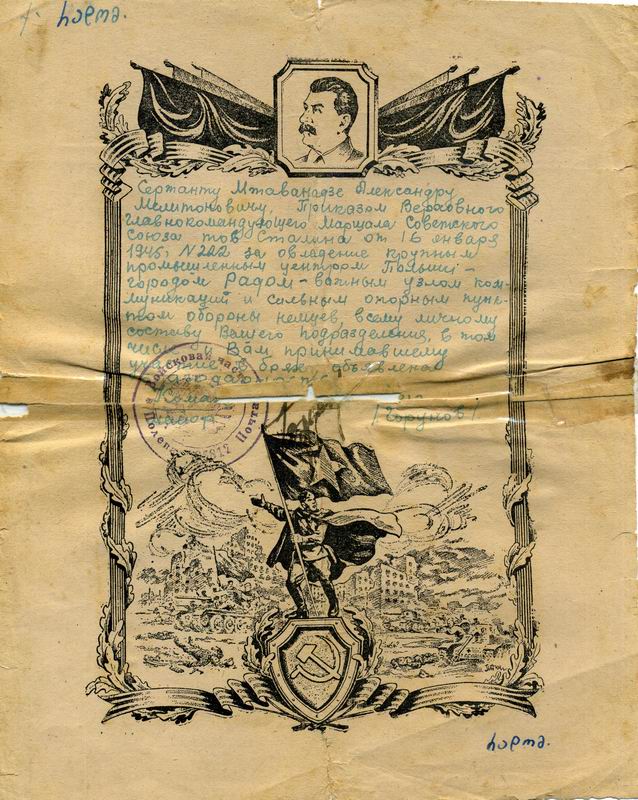 რადომ.
Сержанту Мтаванадзе Александру
Мелитоновичу Приказом Верховного
главнокомандующего Маршала Советского
Союза тов Сталина от 16 января
1945г N222 за овладение крупным
промышленным центром Польши -
городом Радом - важным узлом ком-
муникаций и сильным опорным пунк-
том обороны немцев, всему личному
составу Вашего подразделения, в том
числе и Вам принимавшему
участие в боях объявлена
Войсковая часть
Полевая Почта
/Горунов/
რადომ.